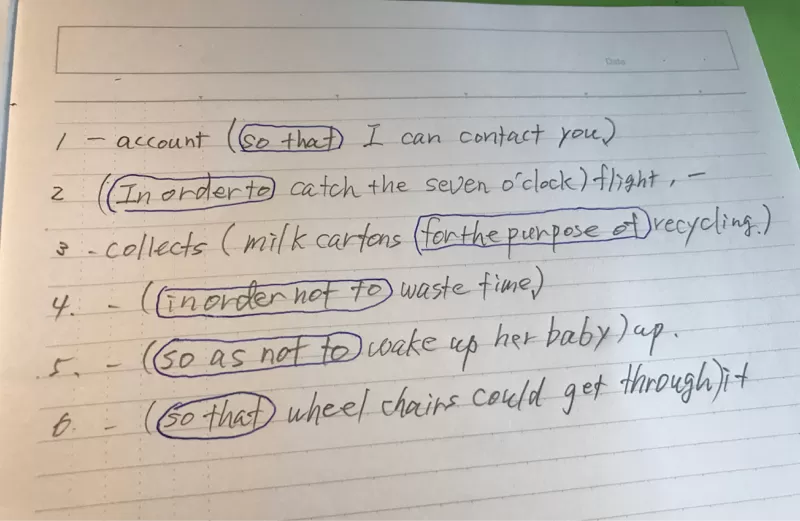 Date
1 - account (so that I can contact you)
2 (In order to catch the seven o'clock) flight, -
3 - collects (milk cartons for the purpose of recycling.)
4. - (in order not to waste time)
5. - (so as not to wake up her baby) up.
6. - (so that wheel chairs could get through) it